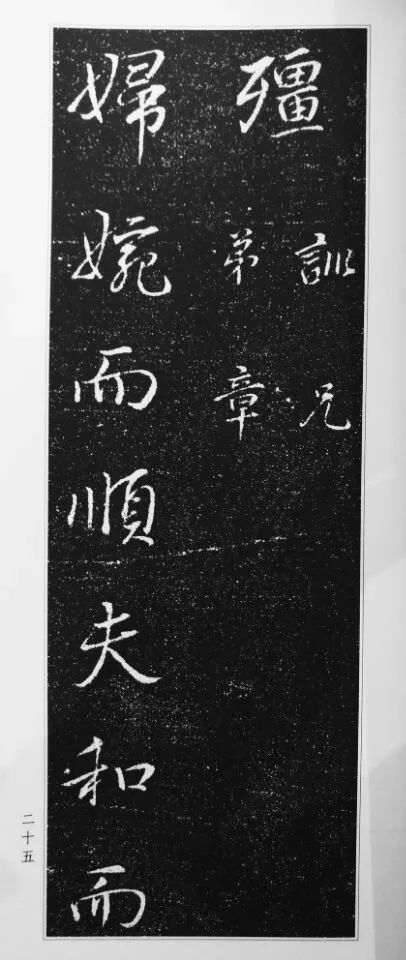 殭
訓兄
弟章
婦婉而順夫和而
二十五